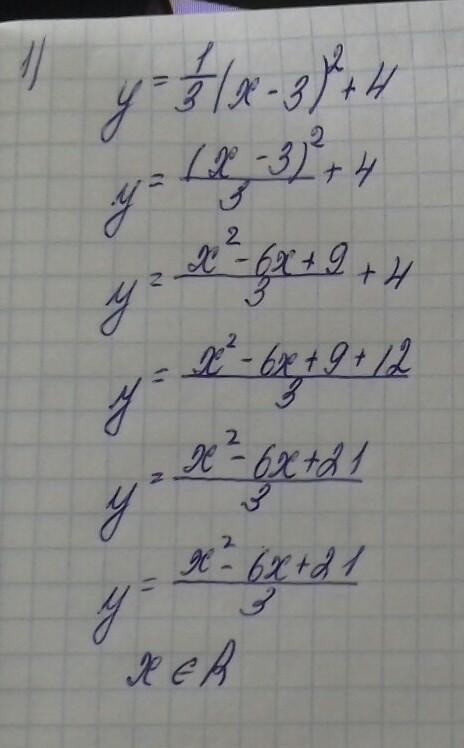 1)
y = 1/3 (x - 3)² + 4
y = (x - 3)²/3 + 4
y = x² - 6x + 9/3 + 4
y = x² - 6x + 9 + 12/3
y = x² - 6x + 21/3
y = x² - 6x + 21/3
x ∈ R